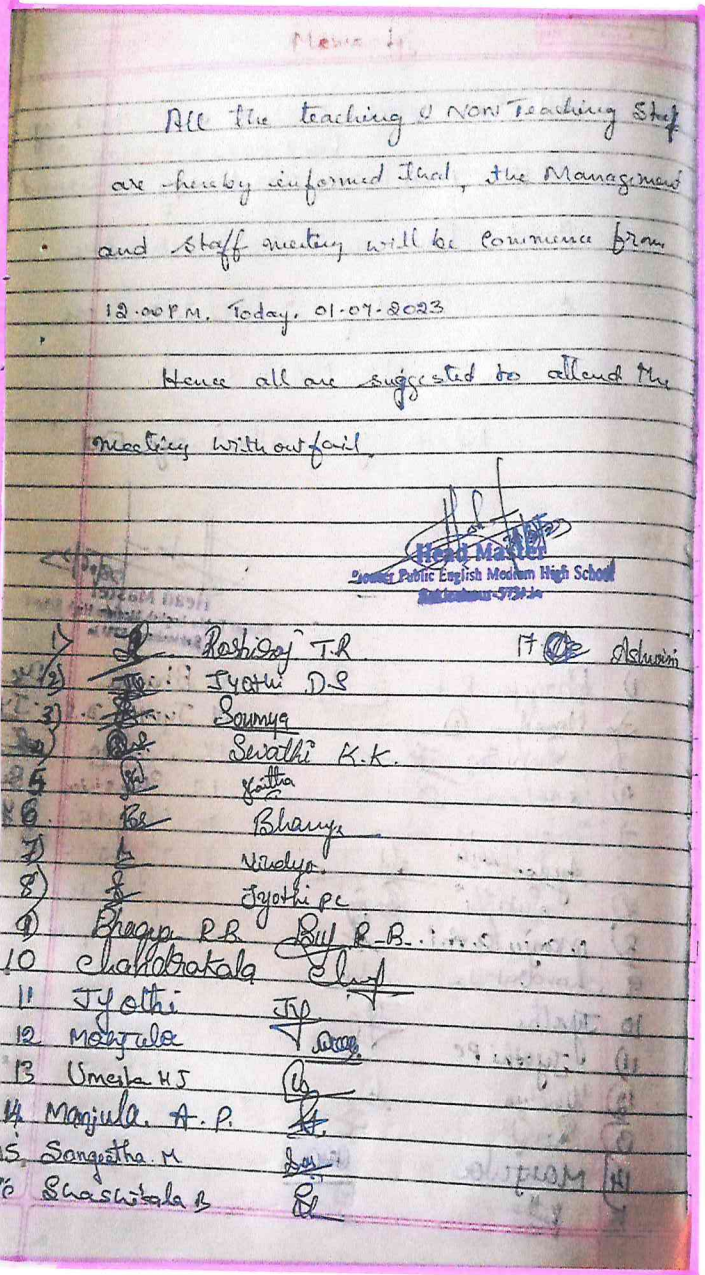 All the teaching & NON Teaching Staff
are hereby informed that, the Management
and staff meeting will be Commence from
12.00 P.M. Today. 01-07-2023
Hence all are suggested to attend the
meeting with out fail.
Head Master
Pioneer Public English Medium High School
1) T.R 17 Ashwini
2) Jyothi D.S
3) Soumya
4) Swathi K.K.
5
6 Bhavya
7) Vindya
8) Jyothi P C
9) Bhagya R.B R.B.
10 Chandrakala
11 Jyothi
12 Manjula
13 Umesha H J
14 Manjula. A. P.
15 Sangeetha. M
16 Shashikala B